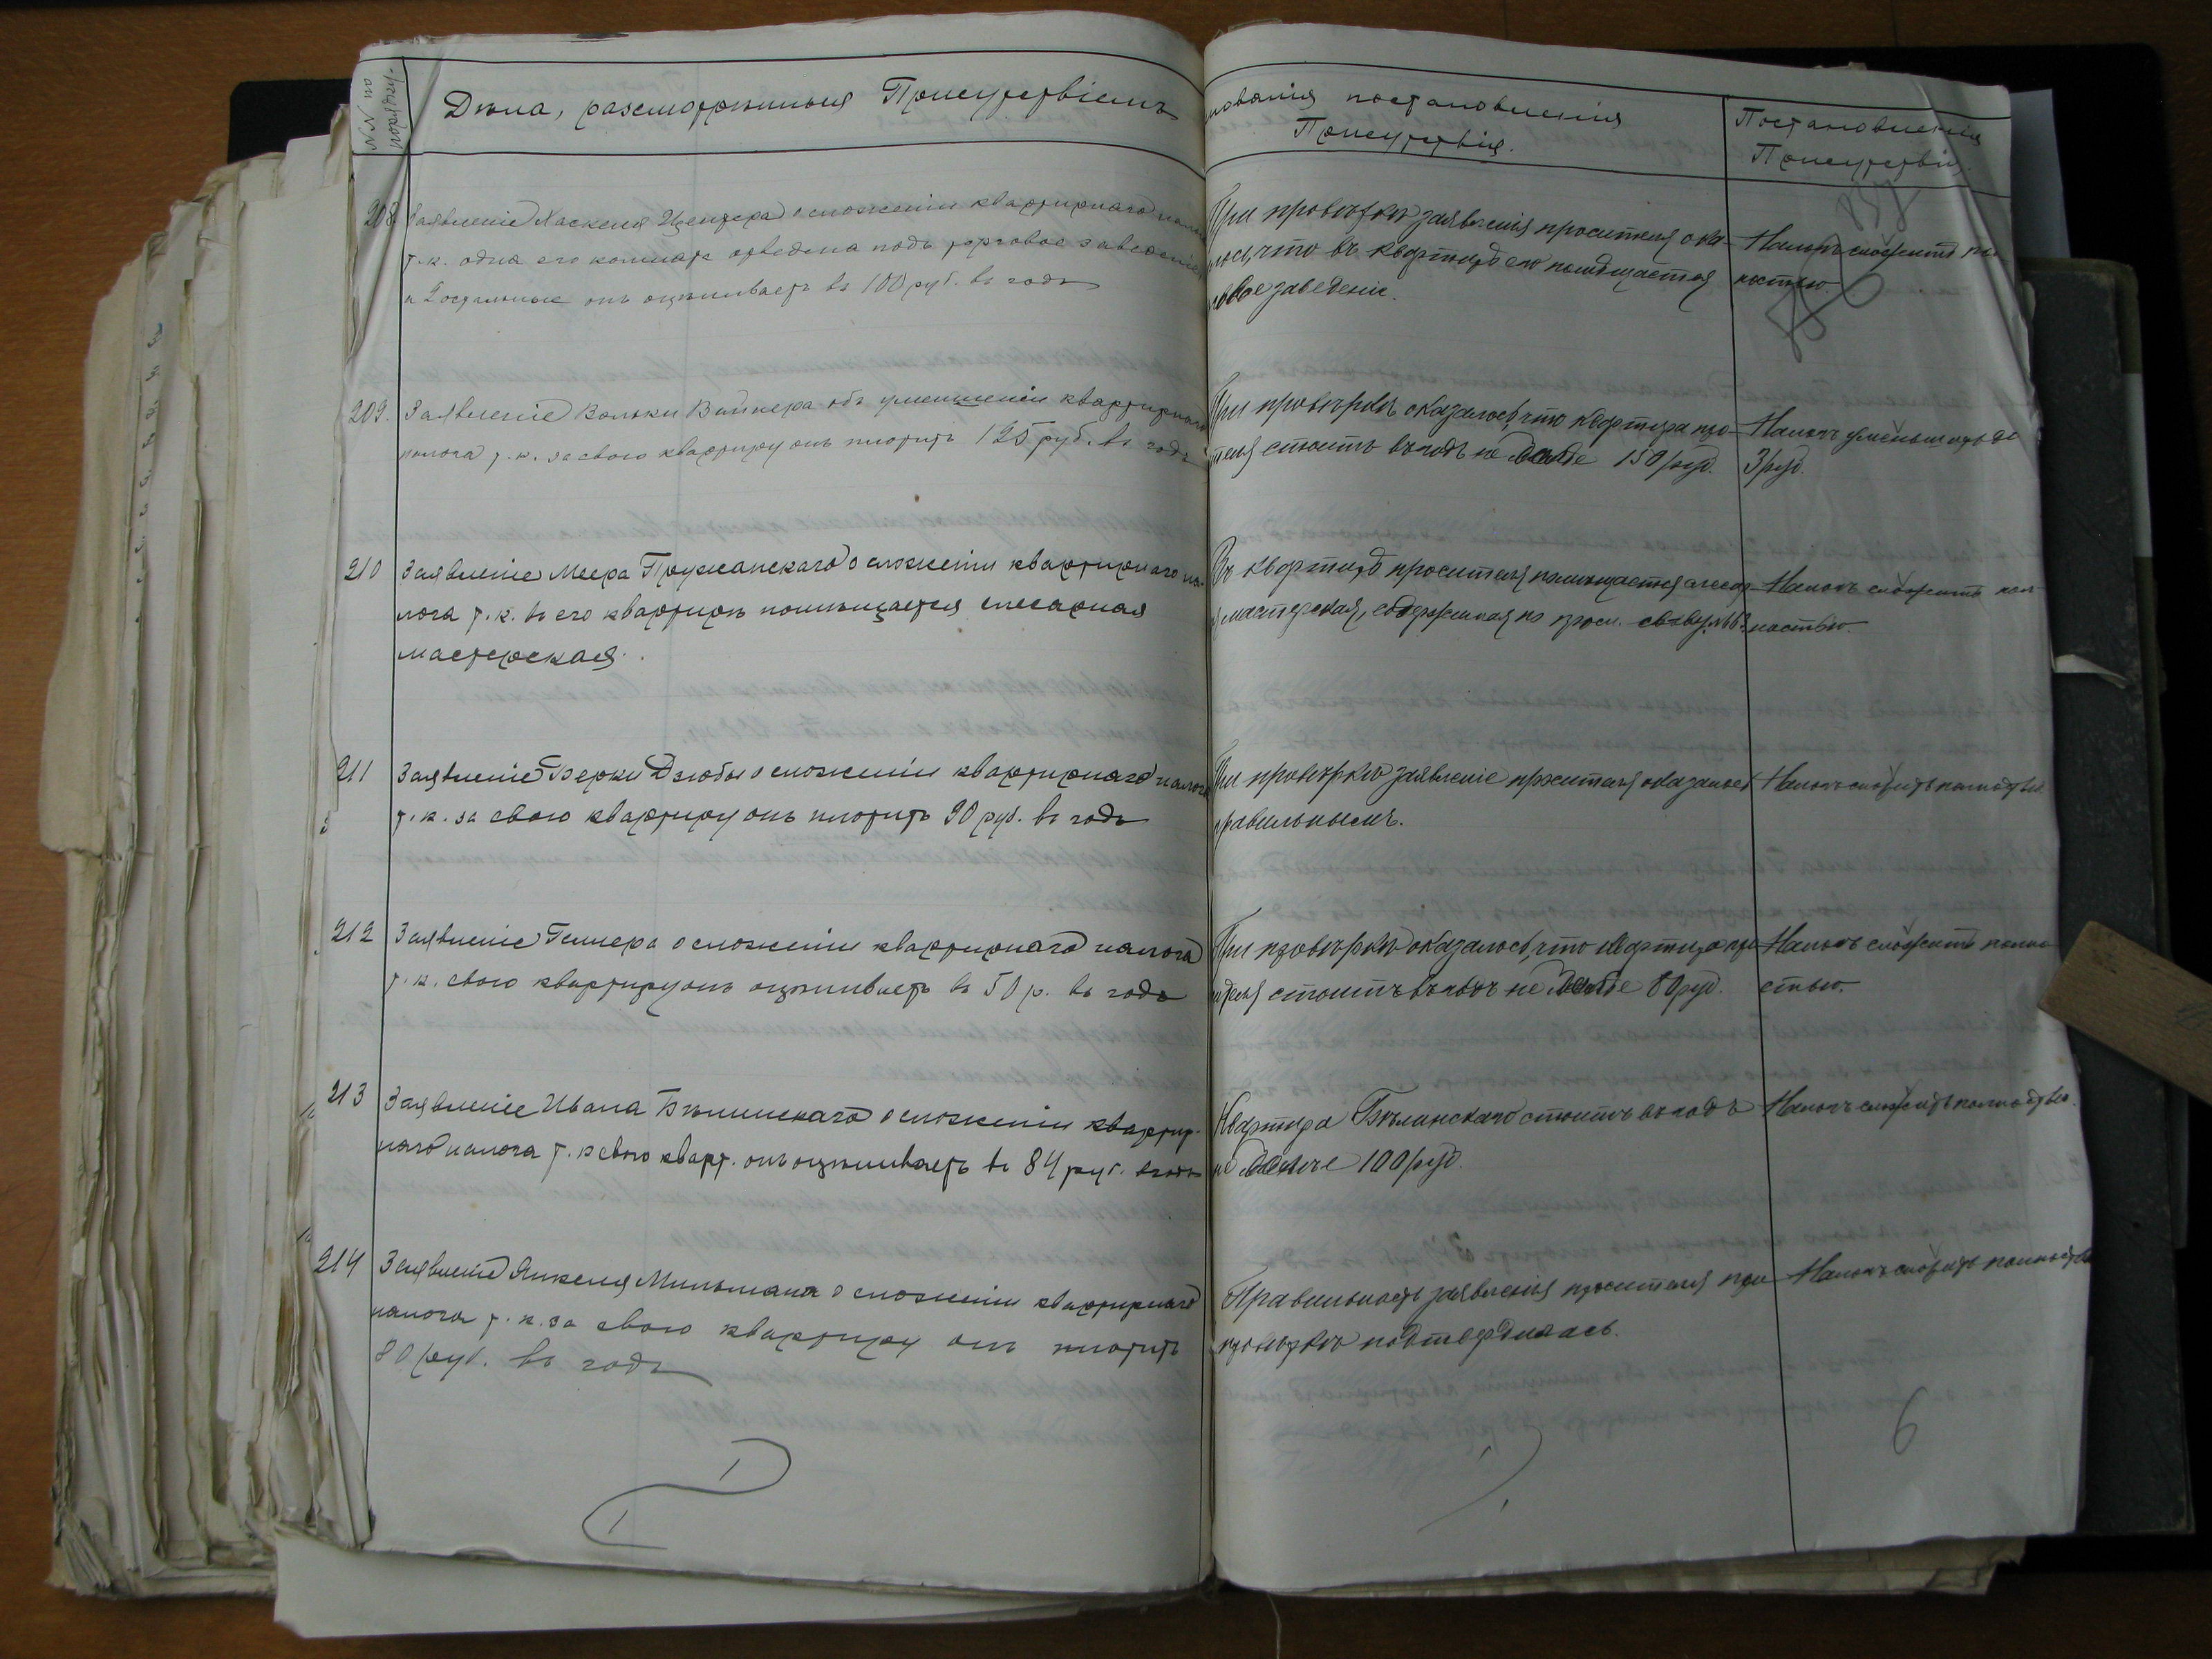 NN по порядку.
Дѣла, разсмотрѣнныя Присутствіемъ
208 Заявленіе Хаскеля Центера о сложеніи квартирнаго нало
т.к. одна его комната отведена подъ торговое заведеніе
а 2 остальные онъ оцѣниваетъ въ 100 руб. въ годъ
209. Заявленіе Вольки Вайнера объ уменшеніи квартирнаго
налога т.к. за свою квартиру онъ платитъ 125 руб. въ годъ
210 Заявленіе Меера Пружанскаго о сложеніи квартирнаго на-
лога т.к. въ его квартирѣ помѣщается слесарная
мастерская.
211 Заявленіе Берки Дзюбы о сложеніи квартирнаго налога
т.к. за свою квартиру онъ платитъ 90 руб. въ годъ
212 Заявленіе Геллера о сложеніи квартирнаго налога
т.к. свою квартиру онъ оцѣниваетъ въ 50 р. въ годъ
213 Заявленіе Ивана Бѣлинскаго о сложеніи квартир-
наго налога т.к. свою кварт. онъ оцѣниваетъ въ 84 руб. въ годъ
214 Заявленіе Янкеля Мильмана о сложеніи квартирнаго
налога т.к. за свою квартиру онъ платитъ
80 руб. въ годъ
нованія постановленія
Присутствія.
Постановленія
Присутствія.
При провѣркѣ заявленія просителя ока-
лось, что въ квартирѣ его помѣщается
говое заведеніе.
Налогъ сложить пол
ностью.
При провѣркѣ оказалось, что квартира про-
теля стоитъ въ годъ не болѣе 150 руб.
Налогъ уменьшить до
3 руб.
Въ квартирѣ просителя помѣщается слесар
мастерская, содержимая по пром. свид.
Налогъ сложить пол-
ностью.
При провѣркѣ заявленіе просителя оказалось
правильнымъ.
Налогъ сложить полностью
При провѣркѣ оказалось, что квартира про
теля стоитъ въ годъ не болѣе 80 руб.
Налогъ сложить полно-
стью.
Квартира Бѣлинскаго стоитъ въ годъ
не болѣе 100 руб.
Налогъ сложить полностью.
Правильность заявленія просителя при
провѣркѣ подтвердилась.
Налогъ сложить полностью
6